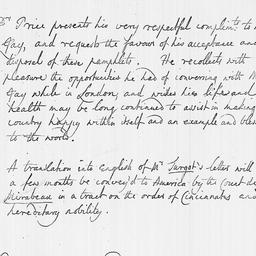 Dr Price presents his very respectful complimts to M
Jay, and requests the favour of his acceptance and
disposal of these pamphlets. He recollects with
pleasure the opportunities he had of conversing with M
Jay while in London, and wishes his life and
health may be long continued to assist in making
country happy within itself and an example and bless
to the world.
A translation into English of Mr Turgot's letter will
a few months be convey'd to America by the Count de
Mirabeau in a tract on the order of Cincinnatus and
hereditary nobility.